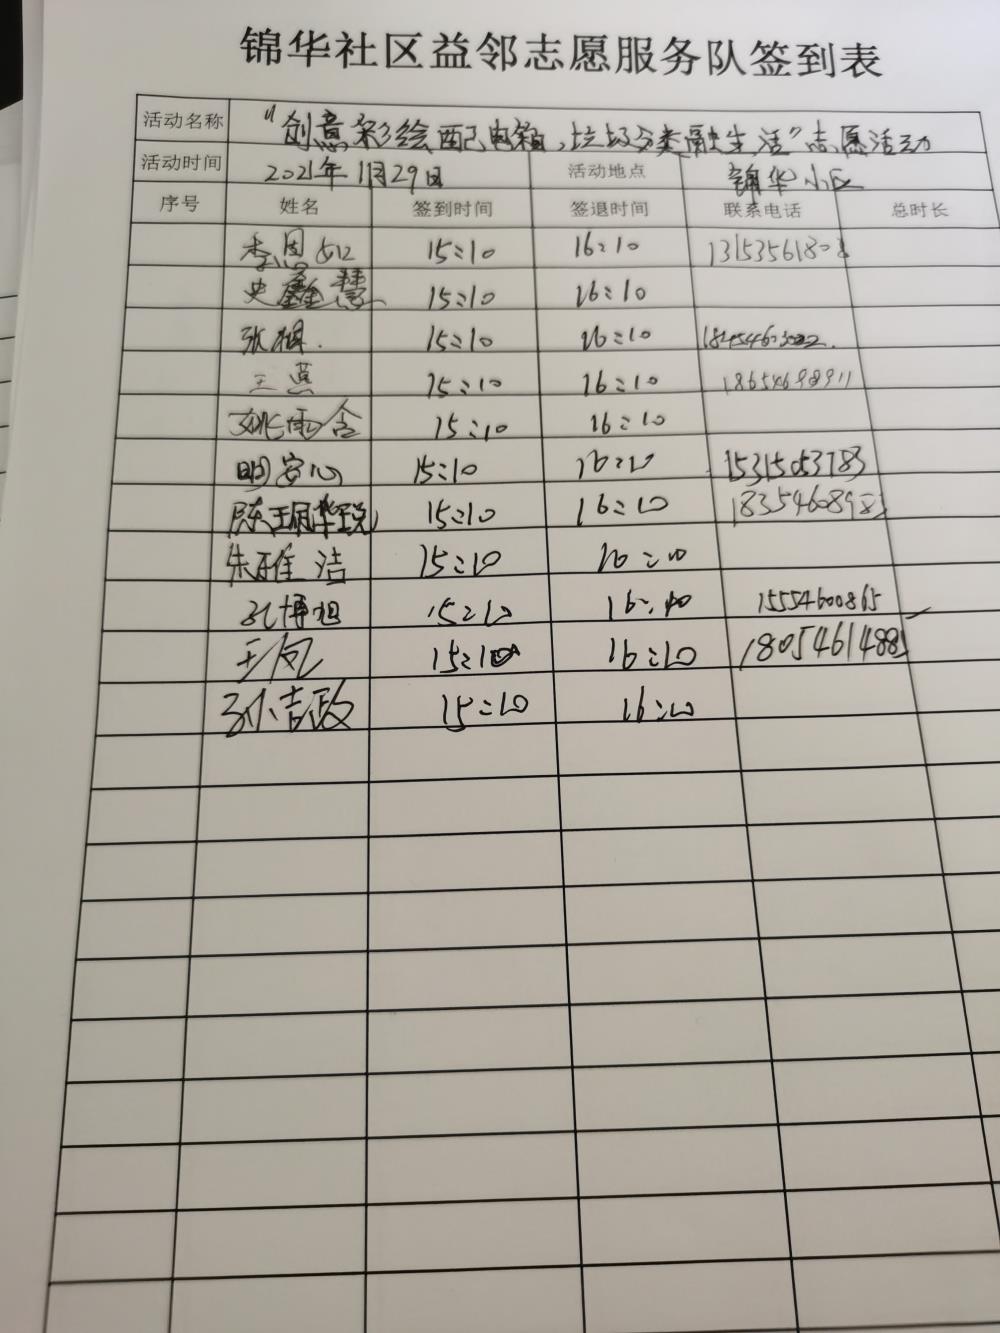 锦华社区益邻志愿服务队签到表
活动名称 “创意彩绘配电箱,垃圾分类融生活”志愿活动
活动时间 2021年11月29日 活动地点 锦华小区
序号 姓名 签到时间 签退时间 联系电话 总时长
李恩如 15:10 16:10
史鑫慧 15:10 16:10
张 15:10 16:10
王燕 15:10 16:10 18654698911
姚雨含 15:10 16:10
明安心 15:10 16:10 15315053783
陈 15:10 16:10
朱雅洁 15:10 16:10
孔博旭 15:10 16:10 15554600865
王凤 15:10 16:10
孙吉政 15:10 16:10